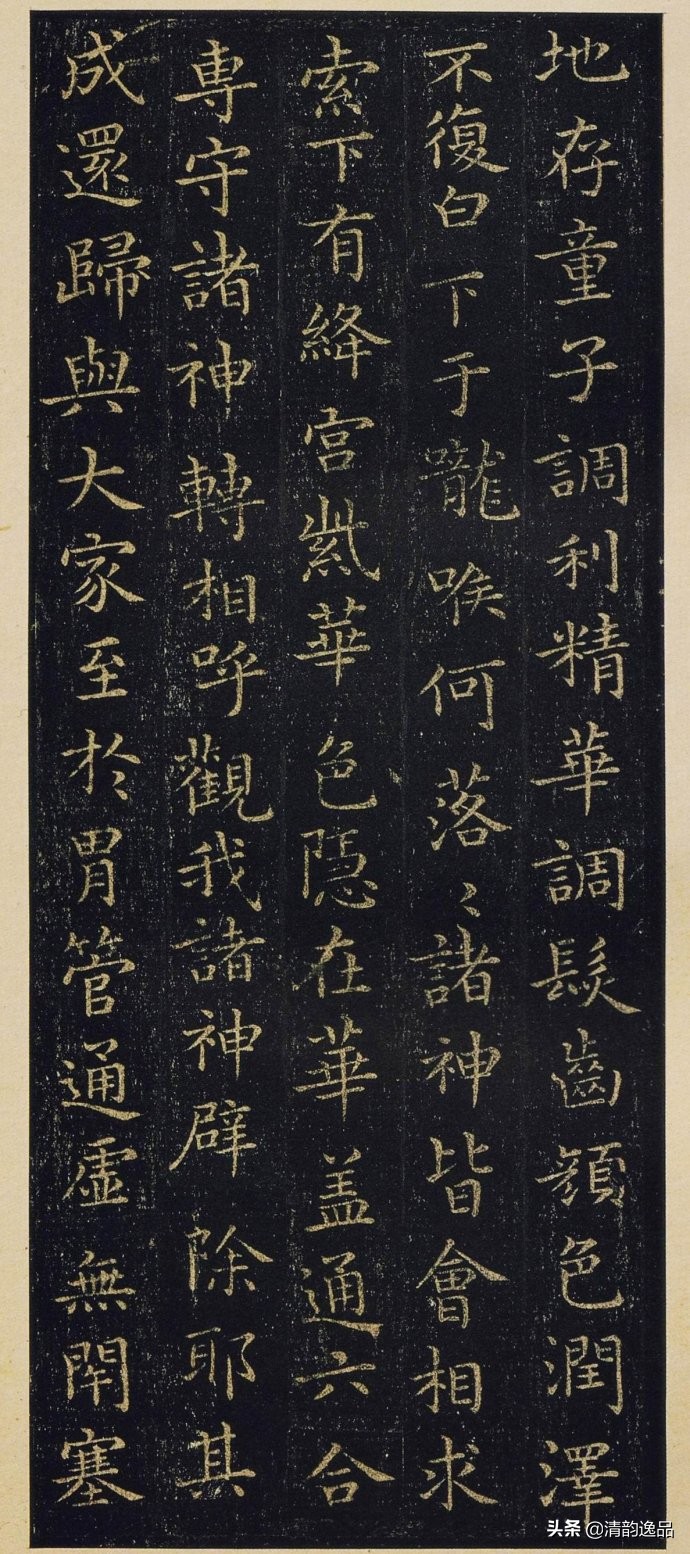 地存童子調利精華調髮齒顏色潤澤
不復白下于嚨喉何落〻諸神皆會相求
索下有絳宮紫華色隱在華盖通六合
専守諸神轉相呼觀我諸神辟除耶其
成還歸與大家至於胃管通虛無閇塞
头条 @清韵逸品